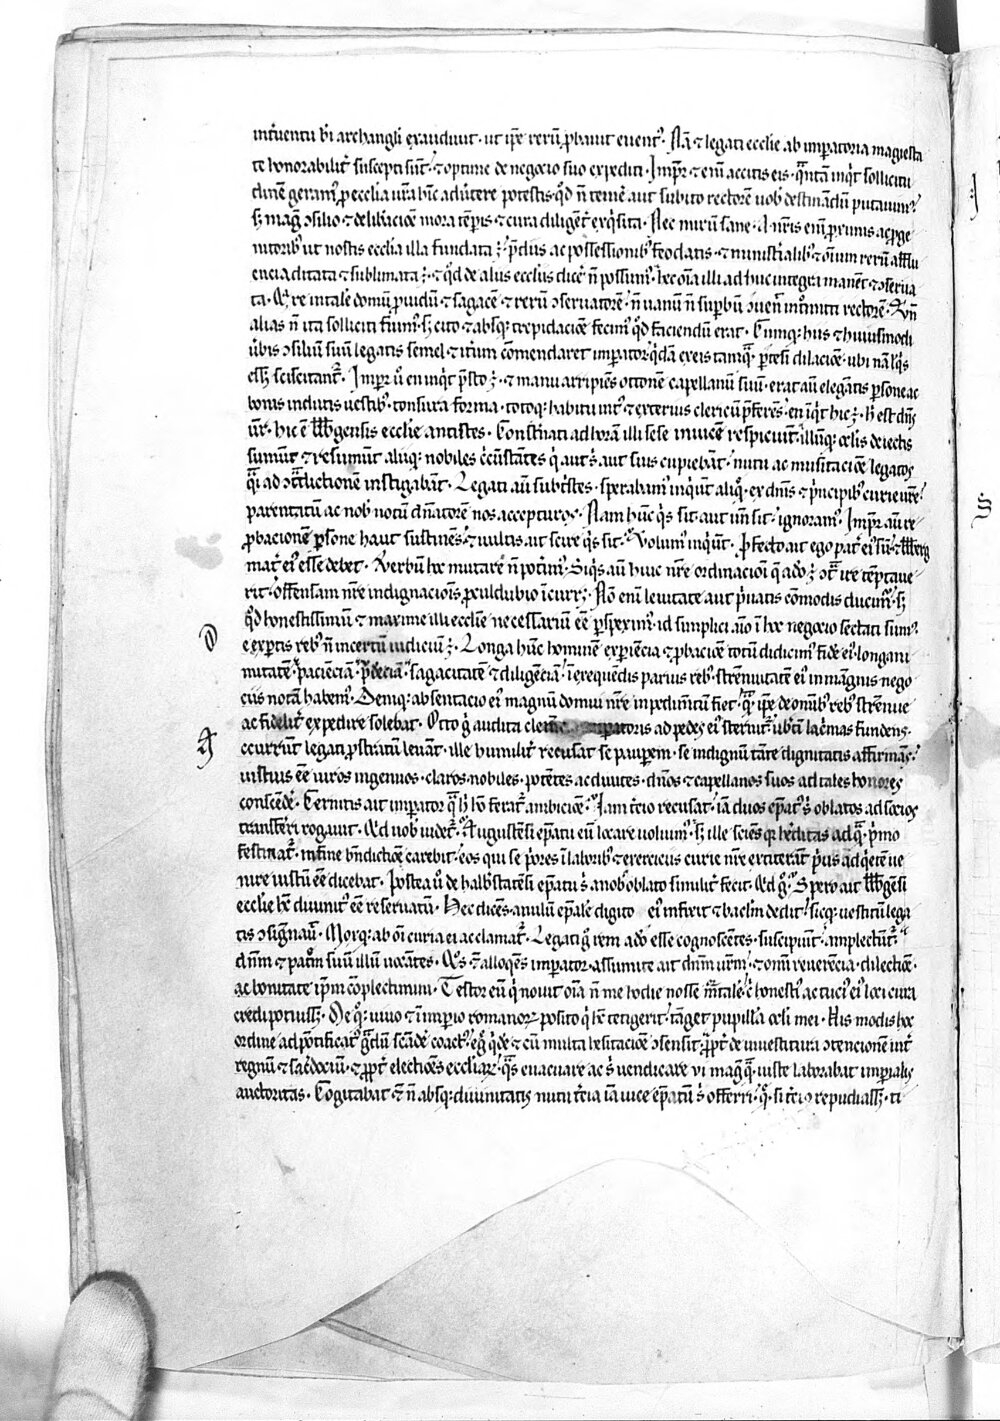 int̾uentu bi archangli exaudiuit · ut ip̅e rerū ꝓbauit euent᷒ · Nā ⁊ legati ecclie ab imꝑatoria magiesta
te honorabilit̾ suscepti sūt · ⁊ optime de negocio suo expediti · Imꝑr ⁊ eni accitis eis · q̄ntā inq̇t sollicitu
dinē geram᷒ ꝓ ecclia ur̄a hīc aduertere potestis · qd̓ n̄ temer̾ aut subito rectorē uob̓ destinādū putauim᷒
sꝫ mag̊ ↄsilio · ⁊ delib̾acioē mora tēpis · ⁊ cura diligent̾ exq̇sita · Nec mirū sane · A nr̄is enī ꝓximis ac ꝓge
nitorib᷒ ut nostis ecclia illa fundata ē · p̄diis ac possessionib᷒ feodatis · ⁊ ministi̾alib᷒ ⁊ om̄ium rerū afflu
encia ditata ⁊ sublimata ē · ⁊ qd̓ de aliis eccliis dicer̾ n̄ possum᷒ · hec om̄ia illi ad huc integri manēt ⁊ ↄserua
ta · Qr̾e in tale domū ꝓuidū ⁊ sagacē ⁊ rerū ↄseruatorē · n̄ uanū n̄ suꝑbū
alias n̄ ita solliciti fuim᷒ · sꝫ cito ⁊ absqꝫ trepidacioē fecim᷒ qd̓ faciendū erat · Cumqꝫ his ⁊ huiusmodi
ūbis ↄsiliū suū legatis semel ⁊ it̾um cōmendaret imꝑator · q̇dā ex eis tamq̄
essꝫ sciscitant᷒ · Imꝑr u̅ en inq̇t p̄sto ē · ⁊ manu arripiēs ottonē capellanū suū · erat aū elegātis ꝑsone ac
bonis indutis uestib᷒ · tonsura forma · totoqꝫ habitu int̾ ⁊ exterius clericū p̄ferēs · en inq̇t hic ē · h̓ est dn̄s
ur̄ · hic ē bb̄gensis ecclie antistes · Const̾nati ad horā illi sese inuicē respiciūt · illiusqꝫ oclis deiectis
sumūt ⁊ resumūt aliqꝫ nobiles c̾cūstātes q̇ aut s᷒ · aut suis cupiebāt · nutu ac musitacioē legatoꝝ
q̄i ad ↄt̄dictionem instigabāt · Legati aū subt̾stes · sperabam᷒ inquiūt aliq̊ ex dn̄is ⁊ p̾ncipib᷒ curie ur̄e
parentatū ac nob̓ notū dn̄atorē nos accepturos · Nam hūc q̇s sit · aut un̄ sit · ignoram᷒ · Imꝑr aū re
ꝓbacionē ꝑsone haut sustinēs · ⁊ uultis ait scire q̇s sit · Volum᷒ inquiūt · Ꝓfecto ait ego pat̾ ei᷒ sū · ⁊ bb̄berg
mat̾ ei᷒ esse debet · Verbū hoc mutare n̄ poterim᷒ · Siq̇s aū huic nr̄e ordinacioni q̄ a dō ē ↄt̄ ire tēptaue
rit · offensam nr̄e indignacioīs ꝓculdubio īcurrꝫ · Nō enī leuitate aut p̾uatis cōmodis ducim᷒ · sꝫ
qd̓ honestissimū ⁊ maxime illi ecclie necessariū eē ꝑspeximꝫ · id simplici aīo ī hoc negocio sectati sum᷒
⁊ exꝑtis reb᷒ n̄ incertū iudiciū ē · Longa hūc hominē exꝑiēcia ⁊ ꝓbacioē totū didicim᷒ · fidē ei᷒ · longani
mitatē · paciēciā · p̄dēciā · sagacitatē ⁊ diligēciā · ī exequēdis paruis reb᷒ · strenuitatē ei᷒ in magnis nego
ciis notā habem᷒ · Deniqꝫ absentacio ei᷒ magnū domui nr̄e inpedimtū fiet · q̄ ip̅e de om̄ib᷒ reb᷒ strēnue
ac fidelit̾ expedire solebat · Otto g̊ audita ad pedes ei᷒ sternit᷒ · ubtī lac̾mas fundens ·
ccurrūnt legati · ꝓstratū leuāt · ille humilit̾ recusat · se pauꝑem · se indignū tāte dignitatis affirmās
iustius eē uiros ingenuos · claros · nobiles · potētes ac diuites · dn̄os ⁊ capellanos suos ad tales honores
conscēde̾ · Cernitis ait imꝑator q̄ h̓ hō ferat̾ ambicioē · Iam tcio recusat · iā duos ep̄at᷒ s᷒ oblatos ad socios
transferri rogauit · Qd̓ nob̓ uidet᷒ · Augustēsi ep̄atu eū locare uolui
festinat᷒ · in fine bn̄dictiōe carebit · eos qui se p̾ores ī laborib᷒ ⁊ exerciciis curie nr̄e extiterāt p̾us ad q̇etē ue
nire iustū eē dicebat · Postea u̅ de halb̾statēsi ep̄atu s᷒ a nob̓ oblato similit̾ fecit · Qd̓ g̊ · Spero ait bb̄gēsi
ecclie hē diuinit᷒ eē reseruatū · Hec dicēs · anulū ep̄ale digito ei᷒ infixit ⁊ baclm̄ dedit · sicqꝫ uestitū lega
tis ↄsignau̾ · Moxqꝫ ab oī curia ei acclamat᷒ · Legati g̊ rem a dō esse cognoscētes · suscipiunt · amplectūt᷒
dn̄m ⁊ patrem suū illū uocātes · Q̊s ⁊ alloq̇ēs imꝑator · assumite ait dn̄m ur̄m · ⁊ om̄i reuerēcia · dilectioē ·
ac bonitate ip̅m cōplectimini · Testor eū q̇ nouit om̄ia n̄ me hodie nosse
credi potiussꝫ · Me qꝫ uiuo ⁊ imꝑio romanoꝝ posito q̇ hc̄ tetigerit · tāget pupillā ocli mei · His modis hoc
ordine ad pōtificat᷒ g̊dū scāde̾ coact᷒ · eg̾ q̇de ⁊ cū multa hesitacioē ↄsensit · ꝓpt̾ de inuestitura ↄtencionē int̾
regnū ⁊ sac̾dociū · ⁊ ꝓpt̾ electiōes eccliaꝝ · q̄s euacuare ac s᷒ uendicare ui magq̄ · iuste laborabat imꝑialis
auctoritas · Cogitabat ⁊ n̄ absqꝫ diuinitatis nutu tcia iā uice ep̄atū s᷒ offerri · q̊ · si tcio repudiassꝫ · ti